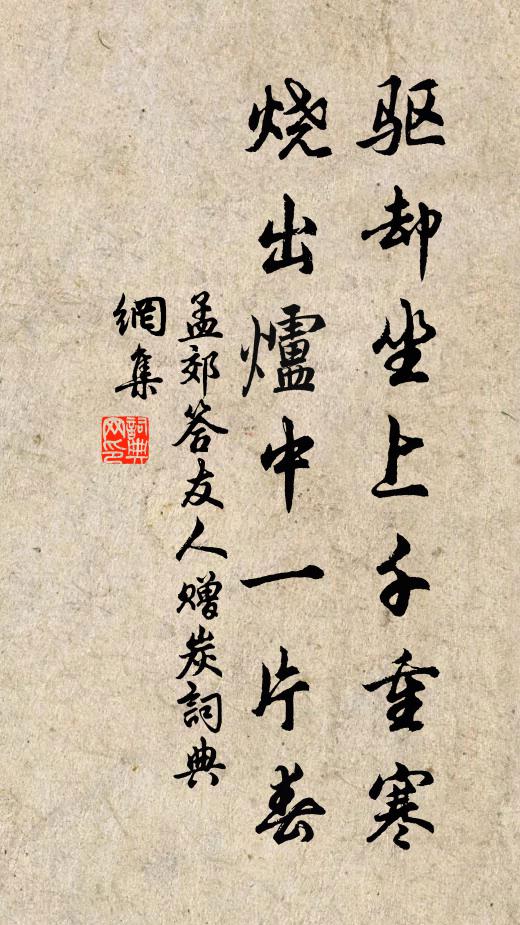 驱却坐上千重寒
烧出爐中一片春
孟郊答友人赠炭詞典
網集
詞典
网印